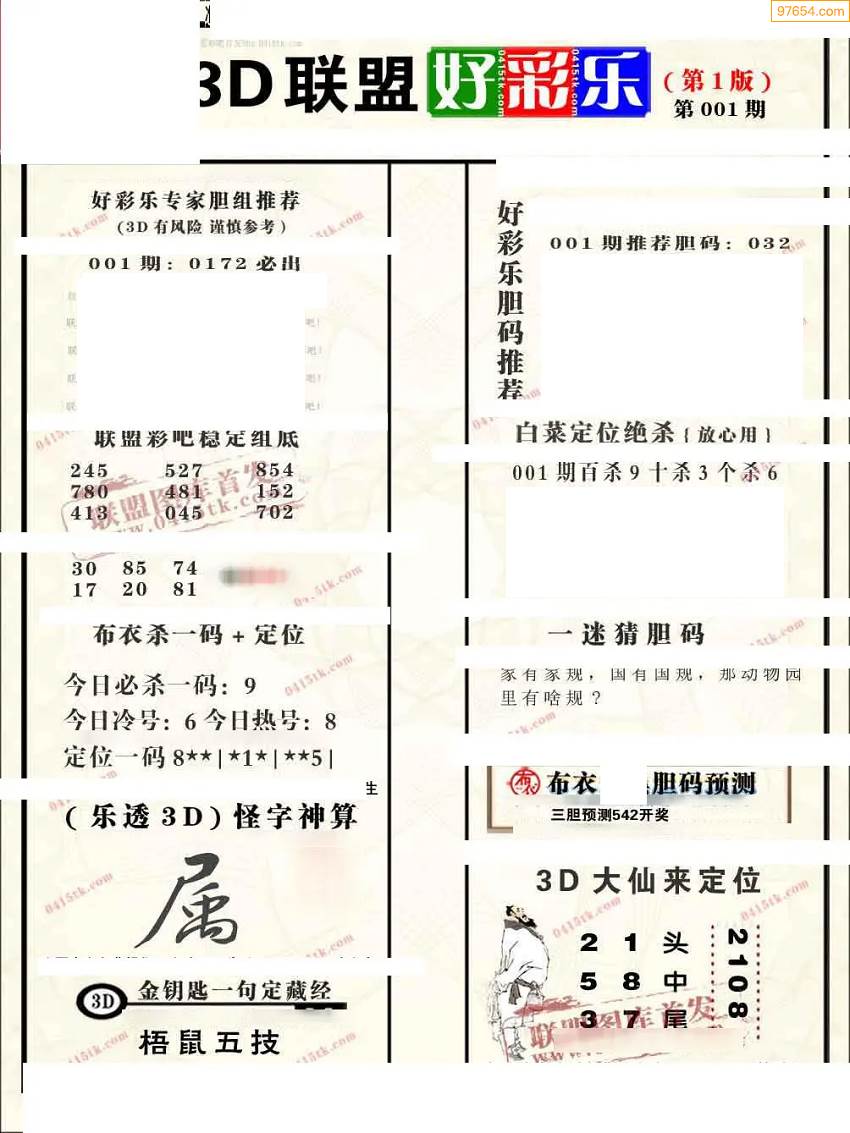 97654.com
3D联盟好彩乐
(第1版)
第001期
好彩乐专家胆组推荐
(3D有风险 谨慎参考)
001期: 0172必出
联盟彩吧稳定组底
245 527 854
780 481 152
413 045 702
联盟图库首发
www.0415tk.com
30 85 74
17 20 81
布衣杀一码+定位
今日必杀一码: 9
今日冷号: 6 今日热号: 8
定位一码 8**|*1*|**5|
生
(乐透3D)怪字神算
属
3D 金钥匙一句定藏经
梧鼠五技
好彩乐胆码推荐
001期推荐胆码: 032
白菜定位绝杀{放心用}
001期百杀9十杀3个杀6
一迷猜胆码
家有家规，国有国规，那动物园
里有啥规?
布衣 胆码预测
三胆预测542开奖
3D大仙来定位
2 1 头
5 8 中
3 7 尾
2108
联盟图库首发
0415tk.com